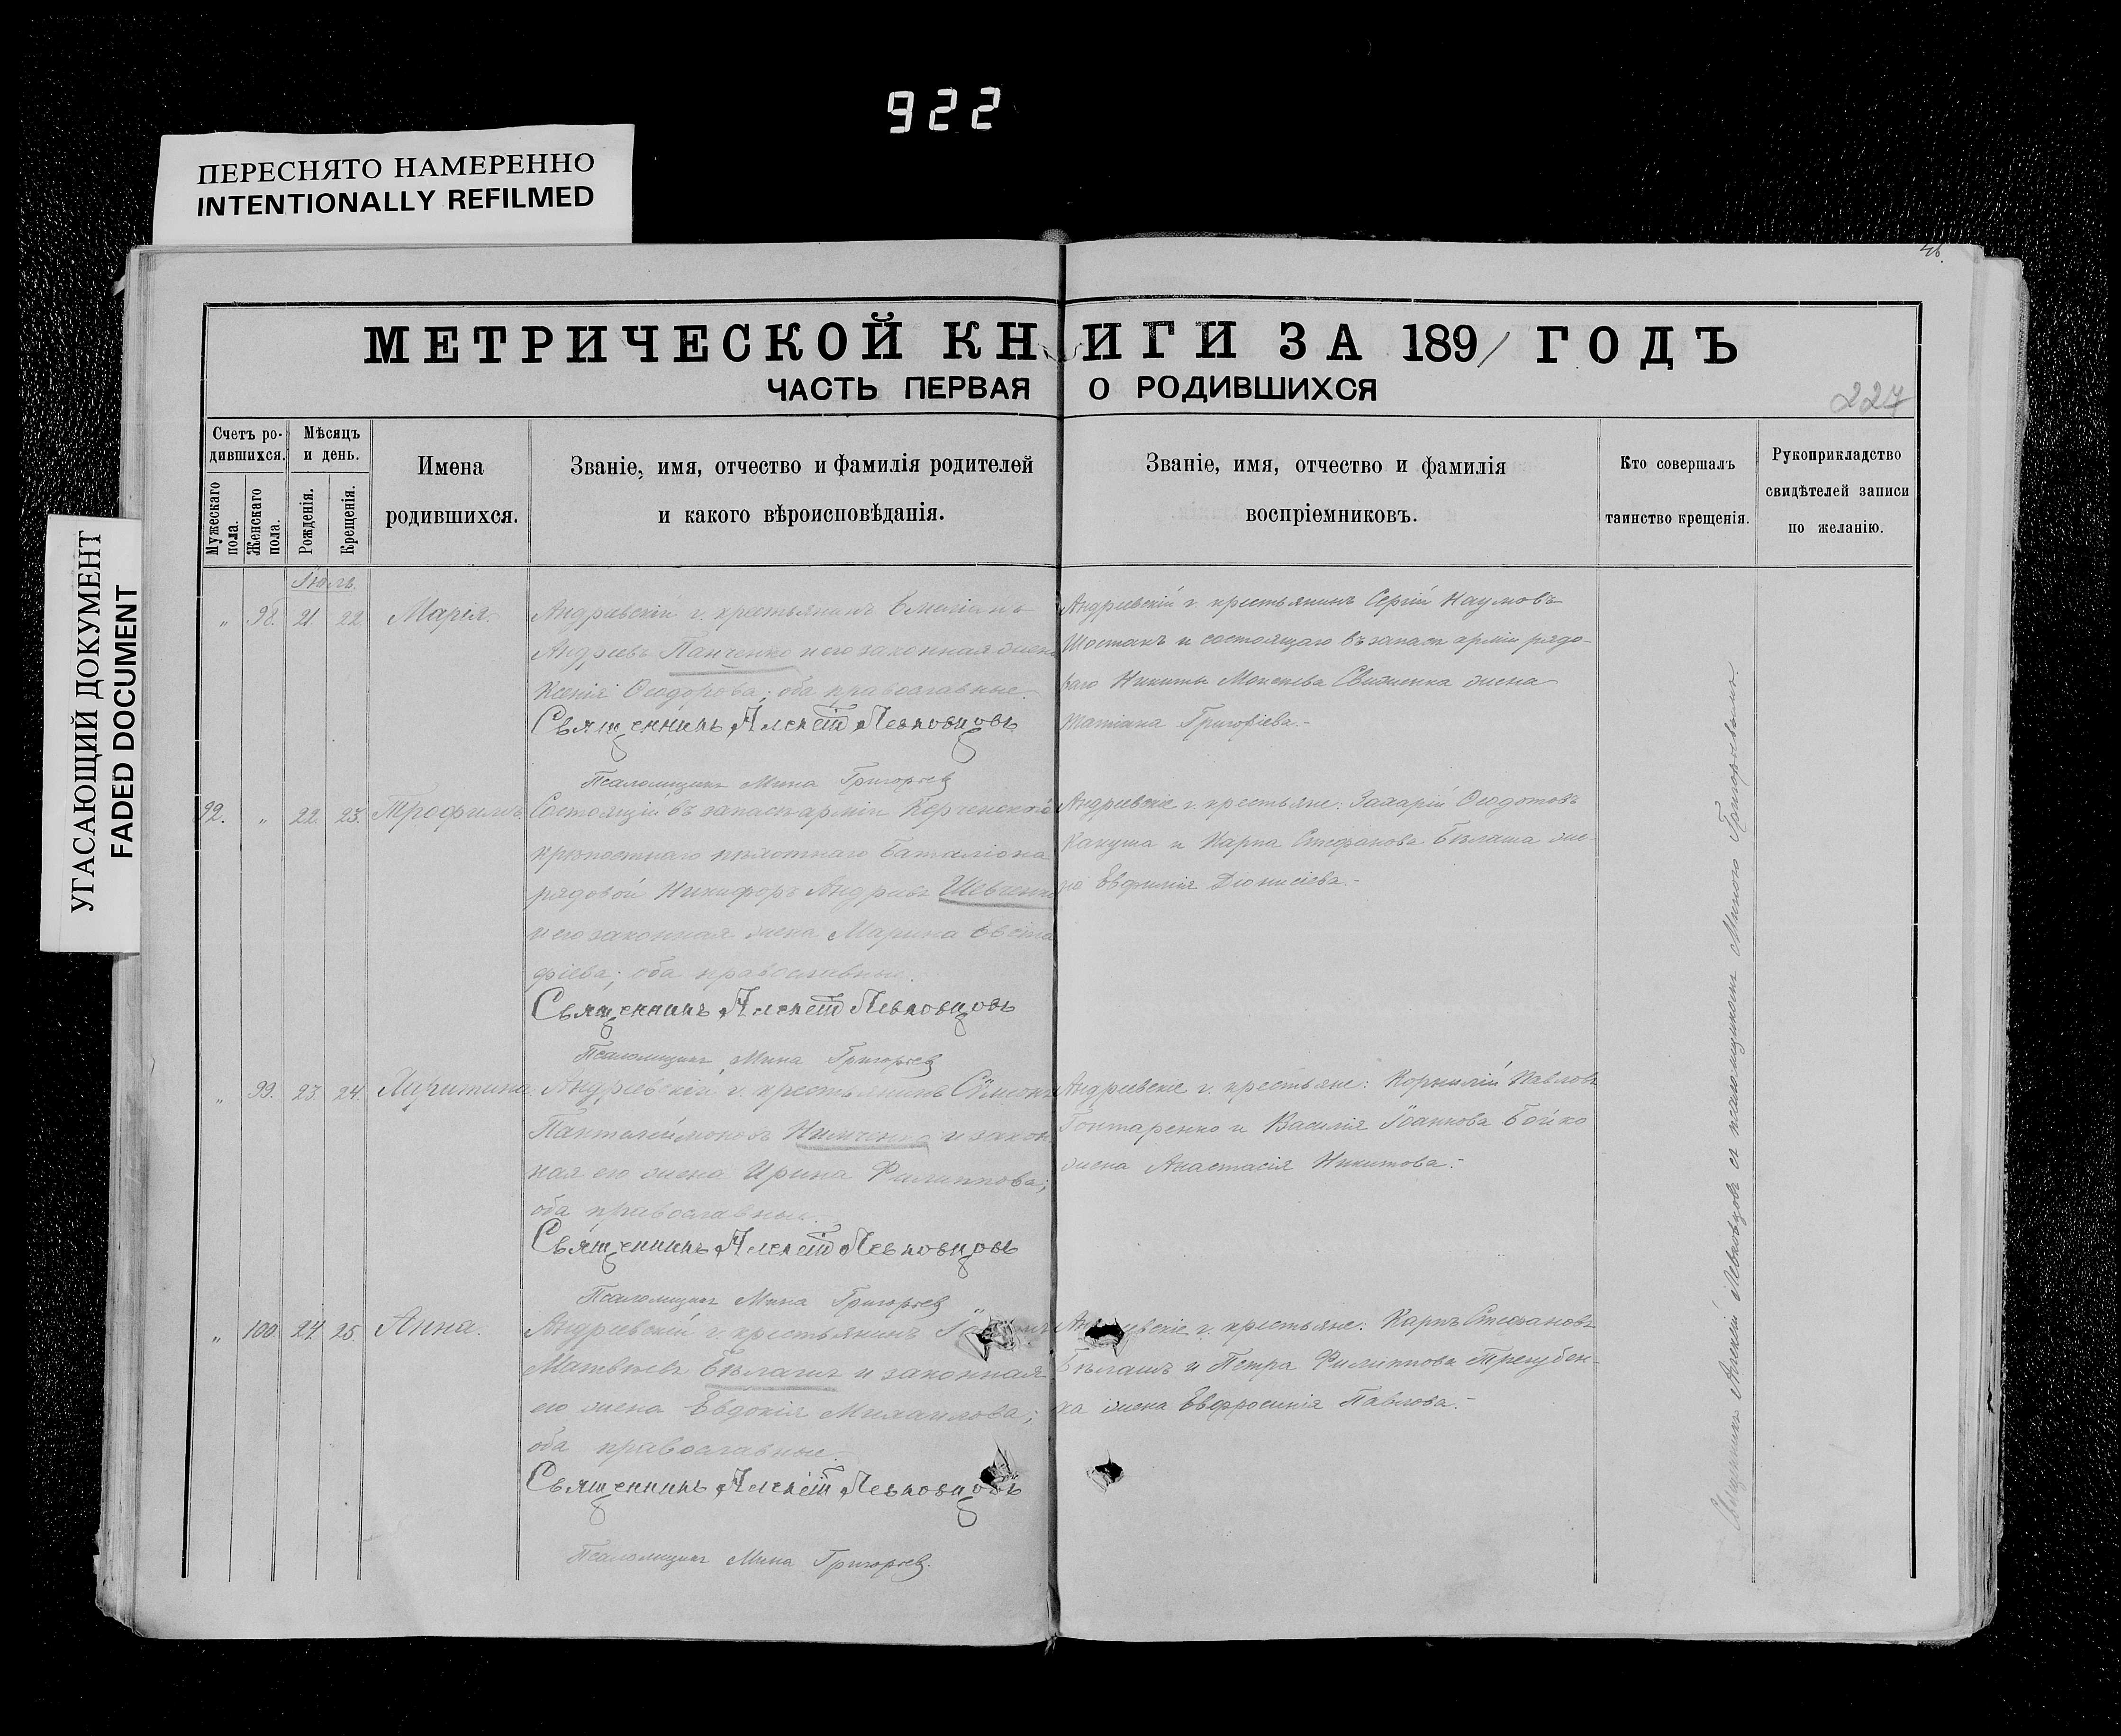 922
ПЕРЕСНЯТО НАМЕРЕННО
INTENTIONALLY REFILMED
УГАСАЮЩИЙ ДОКУМЕНТ
FADED DOCUMENT
46.
МЕТРИЧЕСКОЙ КНИГИ ЗА 1891 ГОДЪ
ЧАСТЬ ПЕРВАЯ О РОДИВШИХСЯ
227
Счетъ ро-
дившихся.
Мужескаго пола.
Женскаго пола.
Мѣсяцъ
и день.
Рожденія.
Крещенія.
Имена
родившихся.
Званіе, имя, отчество и фамилія родителей
и какого вѣроисповѣданія.
Званіе, имя, отчество и фамилія
воспріемниковъ.
Кто совершалъ
таинство крещенія.
Рукоприкладство
свидѣтелей записи
по желанію.
Іюль.
„ 98. 21. 22. Марія.
Андреевскій г. крестьянинъ
Андреевъ Панченко и его законная жена
Ксенія Ѳеодорова; оба православные.
Священникъ Алексій Левковцовъ
Псаломщикъ Мина Григорьев
Андреевскій г. крестьянинъ Сергій Наумовъ
Шостакъ и состоящаго въ запасѣ арміи рядо-
ваго Никиты Моисеева жена
Татіана Григоріева.-
92. „ 22. 23. Трофимъ
Состоящій въ запасѣ арміи Керченскаго
крѣпостнаго пѣхотнаго баталіона
рядовой Никифоръ Андреевъ Шевченко
и его законная жена Марина Евста
фіева; оба православные.
Священникъ Алексій Левковцовъ
Псаломщикъ Мина Григорьев
Андреевскіе г. крестьяне: Захарій Ѳеодотовъ
Какуша и Карпа Стефанова Бѣлаша же-
на Евфимія Діонисіева.-
„ 99. 23. 24. Харитина
Андреевскій г. крестьянинъ Сѵмеонъ
Пантелеимоновъ Нимченко и закон
ная его жена Ирина Филиппова;
оба православные.
Священникъ Алексій Левковцовъ
Псаломщикъ Мина Григорьев
Андреевскіе г. крестьяне: Корнилій Павловъ
Гонтаренко и Василія Іоаннова Бойко
жена Анастасія Никитова.-
„ 100. 24. 25. Анна.
Андреевскій г. крестьянинъ
Матвѣевъ Бѣлашъ и законная
его жена Евдокія Михаилова;
оба православные.-
Священникъ Алексій Левковцовъ
Псаломщикъ Мина Григорьев.
Андреевскіе г. крестьяне: Карпъ Стефановъ
Бѣлашъ и Петра Филиппова Трегубен-
ка жена Евфросинія Павлова.-
Священникъ Алексій Левковцовъ съ псаломщикомъ Миною Григорьевымъ.